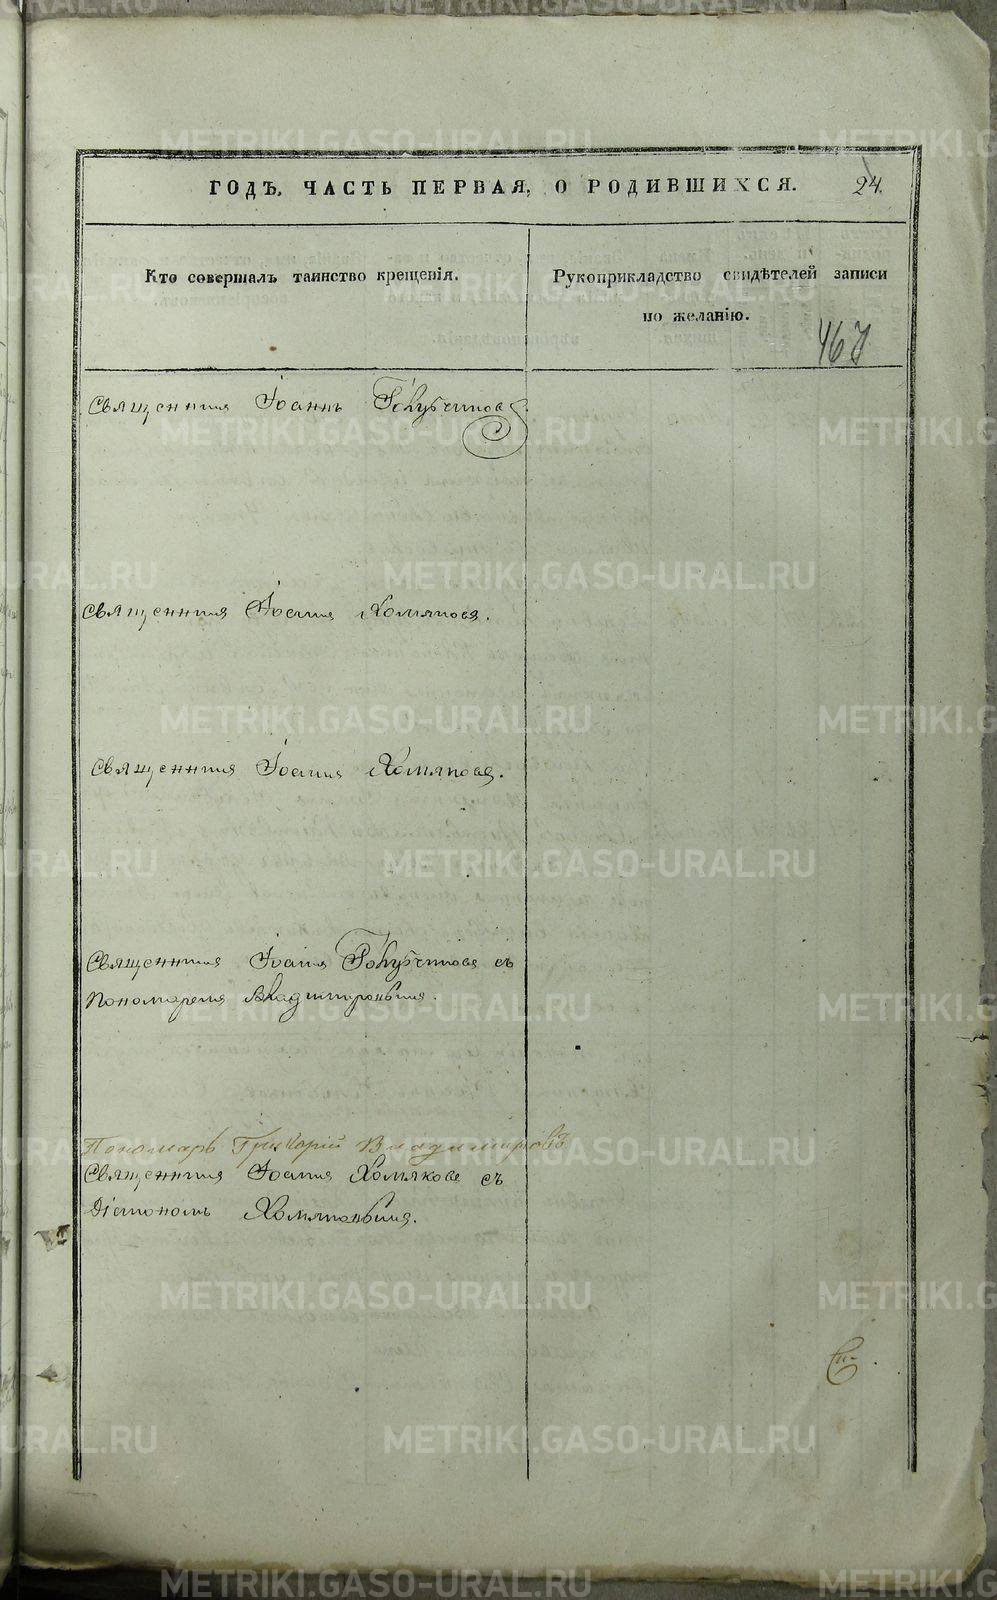 ГОДЪ, ЧАСТЬ ПЕРВАЯ, О РОДИВШИХСЯ. 24.
Кто совершалъ таинство крещенія.
Рукоприкладство свидѣтелей записи
по желанію.
467
Священникъ Іоаннъ Голубчиковъ.
Священникъ Іоаннъ Хомяковъ.
Священникъ Іоаннъ Хомяковъ.
Священникъ Іоаннъ Голубчиковъ съ
Пономаремъ Владимировымъ.
Пономарь Григорій Владимировъ
Священникъ Іоаннъ Хомяковъ съ
Діакономъ Хомяковымъ.
METRIKI.GASO-URAL.RU